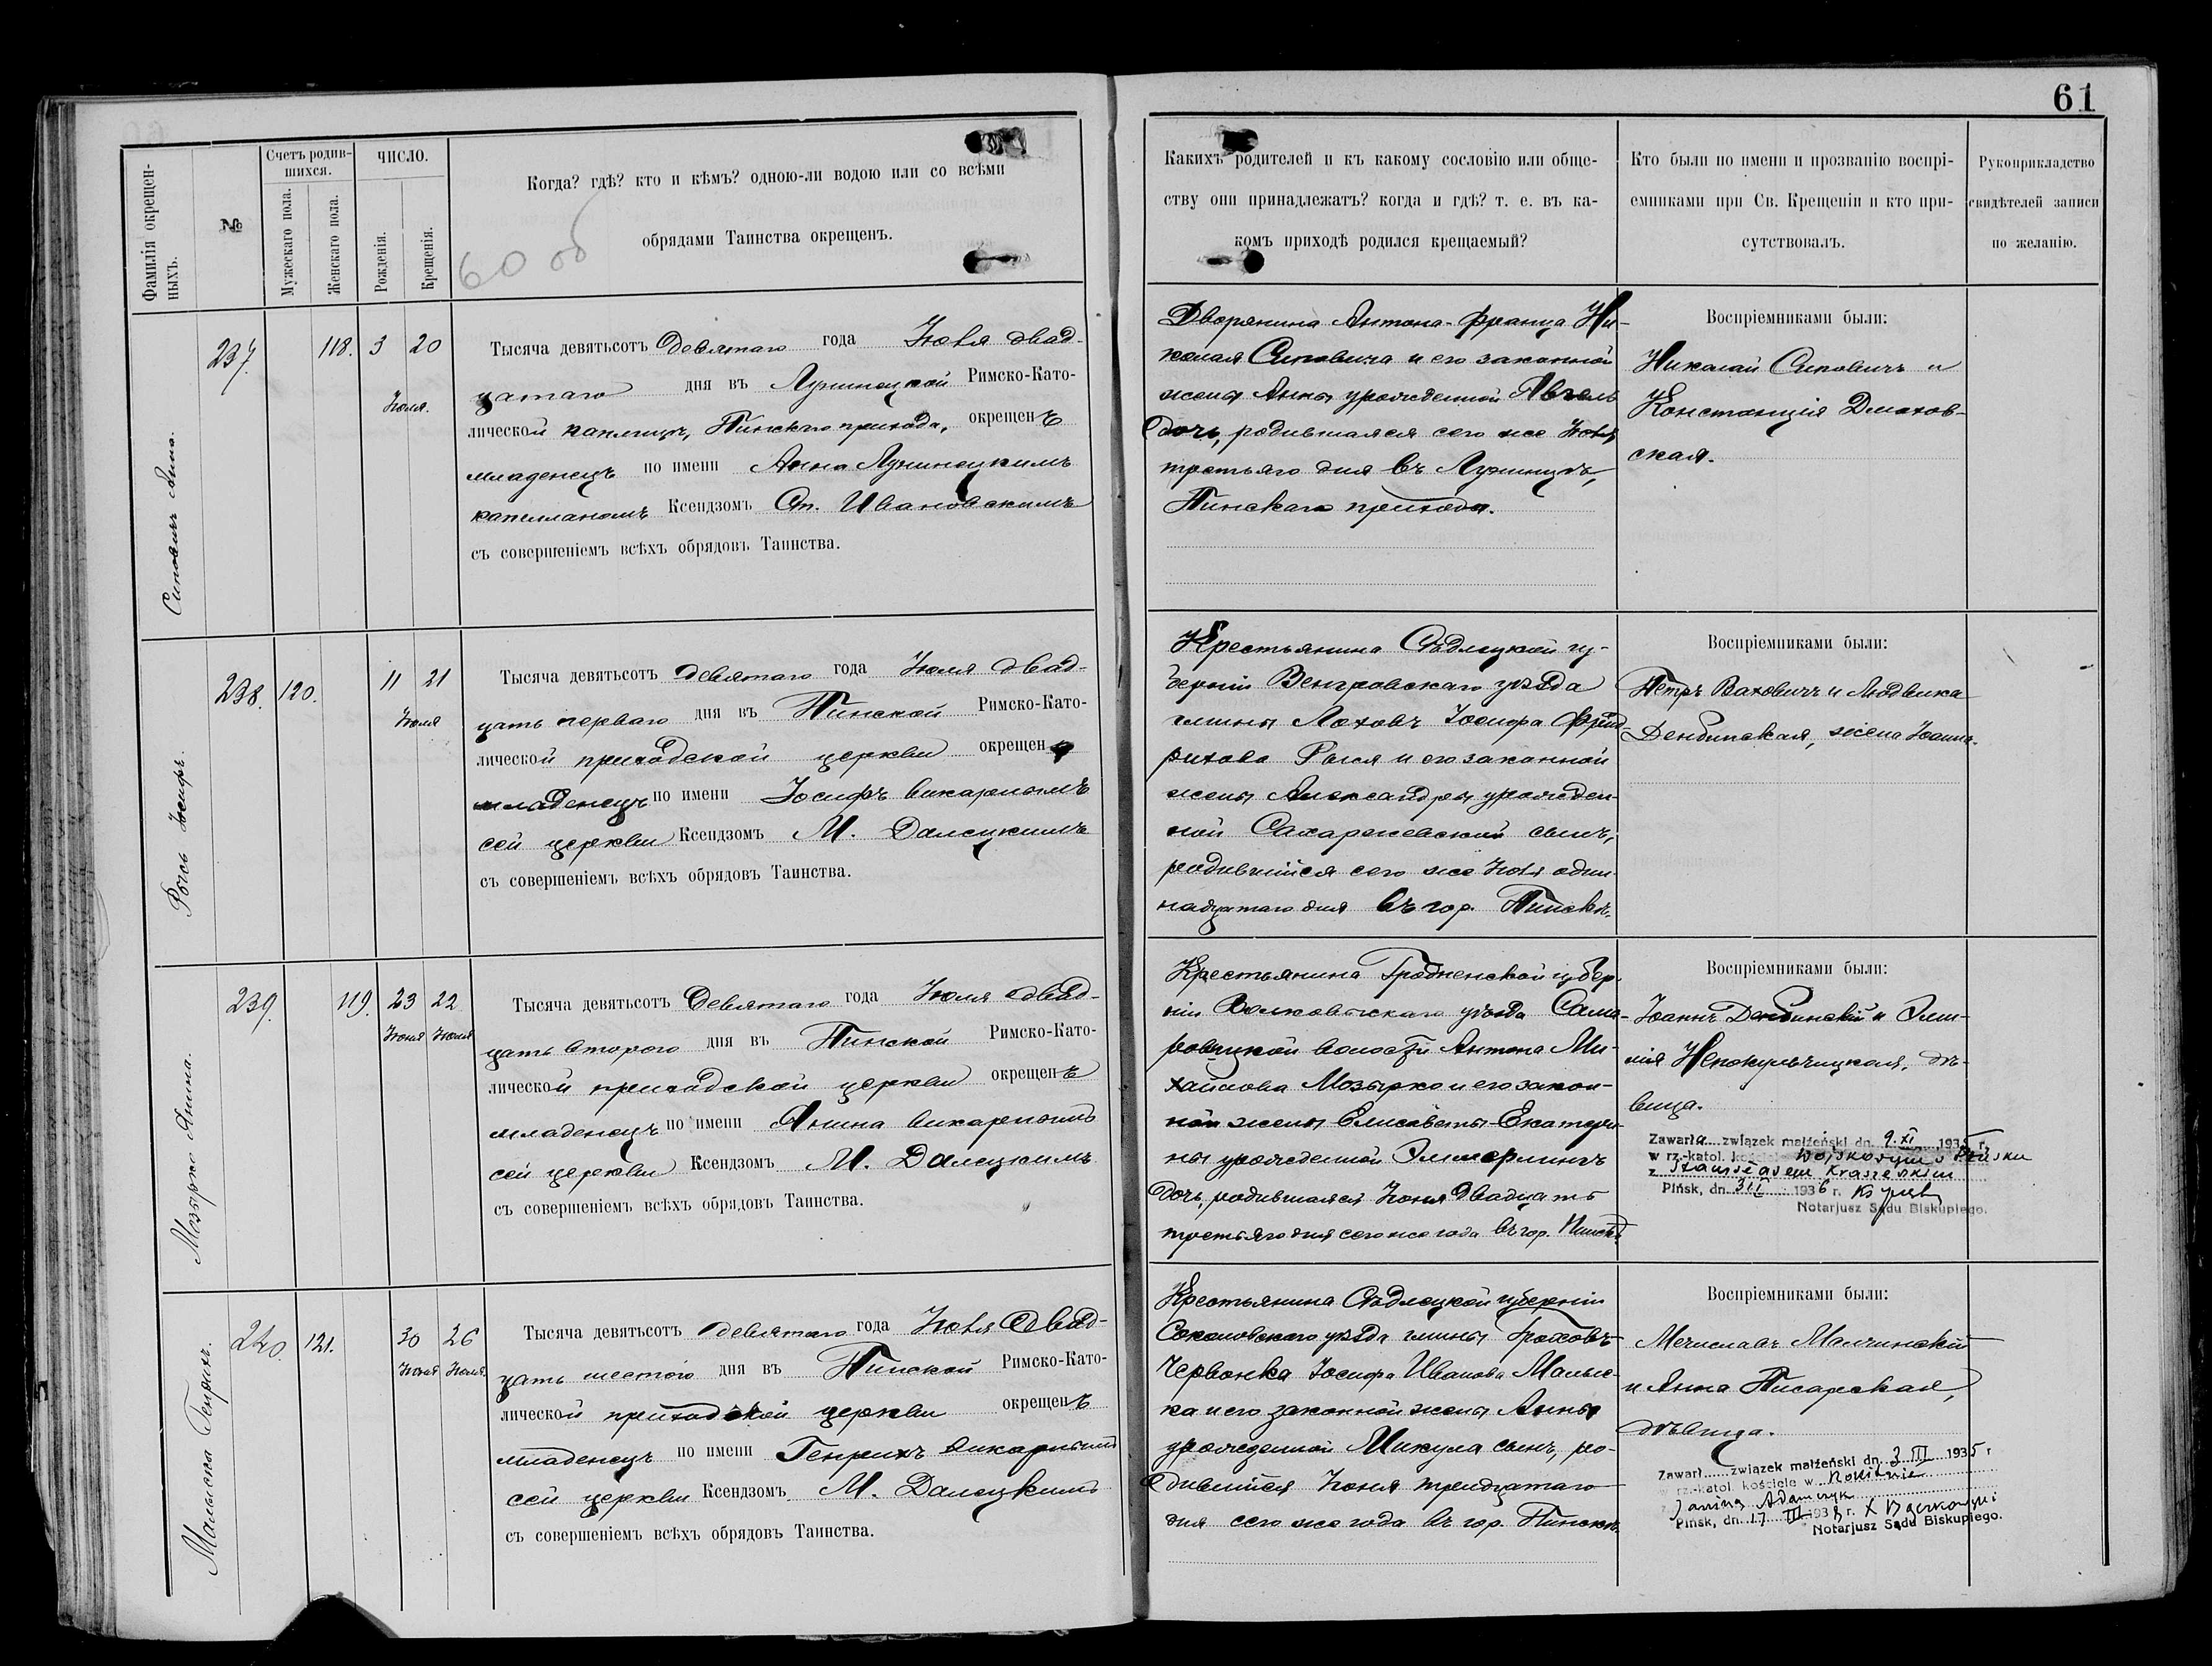 61
Фамилія окрещен-
ныхъ.
№
Счетъ родив-
шихся.
Мужескаго пола.
Женскаго пола.
ЧИСЛО.
Рожденія.
Крещенія.
Когда? гдѣ? кто и кѣмъ? одною-ли водою или со всѣми
обрядами Таинства окрещенъ.
60 об
Какихъ родителей и къ какому сословію или обще-
ству они принадлежатъ? когда и гдѣ? т. е. въ ка-
комъ приходѣ родился крещаемый?
Кто были по имени и прозванію воспрі-
емниками при Св. Крещеніи и кто при-
сутствовалъ.
Рукоприкладство
свидѣтелей записи
по желанію.
Анна.
237.
118.
3
20
Іюля.
Тысяча девятьсотъ девятаго года Іюля двад-
цатаго дня въ Лунинецкой Римско-Като-
лической каплицѣ, Пинскаго прихода, окрещенъ
младенецъ по имени Анна Лунинецкимъ
капелланомъ Ксендзомъ Ст. Ивановскимъ
съ совершеніемъ всѣхъ обрядовъ Таинства.
Дворянина Антона-Франца Ни-
колая и его законной
жены Анны урожденной
дочь, родившаяся сего же Іюля
третьяго дня въ Лунинцѣ,
Пинскаго прихода.
Воспріемниками были:
Николай и
Констанція Дмохов-
ская.
Рысь Іосифъ.
238.
120.
11
21
Іюля
Тысяча девятьсотъ девятаго года Іюля двад-
цать перваго дня въ Пинской Римско-Като-
лической приходской церкви окрещенъ
младенецъ по имени Іосифъ викарнымъ
сей церкви Ксендзомъ М. Далецкимъ
съ совершеніемъ всѣхъ обрядовъ Таинства.
Крестьянина Сѣдлецкой гу-
берніи Венгровскаго уѣзда
гмины Лоховъ Іосифа Фрид-
рихова Рыся и его законной
жены Александры урожден-
ной сынъ,
родившійся сего же Іюля один-
надцатаго дня въ гор. Пинскѣ.
Воспріемниками были:
Петръ Ваховичъ и Людвика
Дембинская, жена Іоанна.
Мозырко Янина.
239.
119.
23
22
Іюня
Іюля
Тысяча девятьсотъ девятаго года Іюля двад-
цать втораго дня въ Пинской Римско-Като-
лической приходской церкви окрещенъ
младенецъ по имени Янина викарнымъ
сей церкви Ксендзомъ М. Далецкимъ
съ совершеніемъ всѣхъ обрядовъ Таинства.
Крестьянина Гродненской губер-
ніи Волковыскаго уѣзда Само-
ровичской волости Антона Ми-
хайлова Мозырко и его закон-
ной жены Елисаветы-Екатери-
ны урожденной
дочь, родившаяся Іюня двадцать
третьяго дня сего же года въ гор. Пинскѣ.
Воспріемниками были:
Іоаннъ Дембинскій и Эми-
лія Непокульчицкая, дѣ-
вица.
Zawarła związek małżeński dn. 9.XI 1935 r.
w rz.-katol. kościele Wojskowym w Pińsku
z Stanisławem Kraszewskim
Pińsk, dn. 3 II 1936 r.
Notarjusz Sądu Biskupiego.
Малыска Генрихъ.
240.
121.
30
26
Іюня
Іюля.
Тысяча девятьсотъ девятаго года Іюля двад-
цать шестого дня въ Пинской Римско-Като-
лической приходской церкви окрещенъ
младенецъ по имени Генрихъ викарнымъ
сей церкви Ксендзомъ М. Далецкимъ
съ совершеніемъ всѣхъ обрядовъ Таинства.
Крестьянина Сѣдлецкой губерніи
Соколовскаго уѣзда гмины
Червонка Іосифа Иванова Малыс-
ка и его законной жены Анны
урожденной Микула сынъ, ро-
дившійся Іюня тридцатаго
дня сего же года въ гор. Пинскѣ.
Воспріемниками были:
Мечиславъ Малчинскій
и Анна Писарская,
дѣвица.
Zawarł związek małżeński dn. 3 III 1935 r
w rz.-katol. kościele w Rokitnie
z Janiną Adamczyk
Pińsk, dn. 17 III 1938 r.
Notarjusz Sądu Biskupiego.